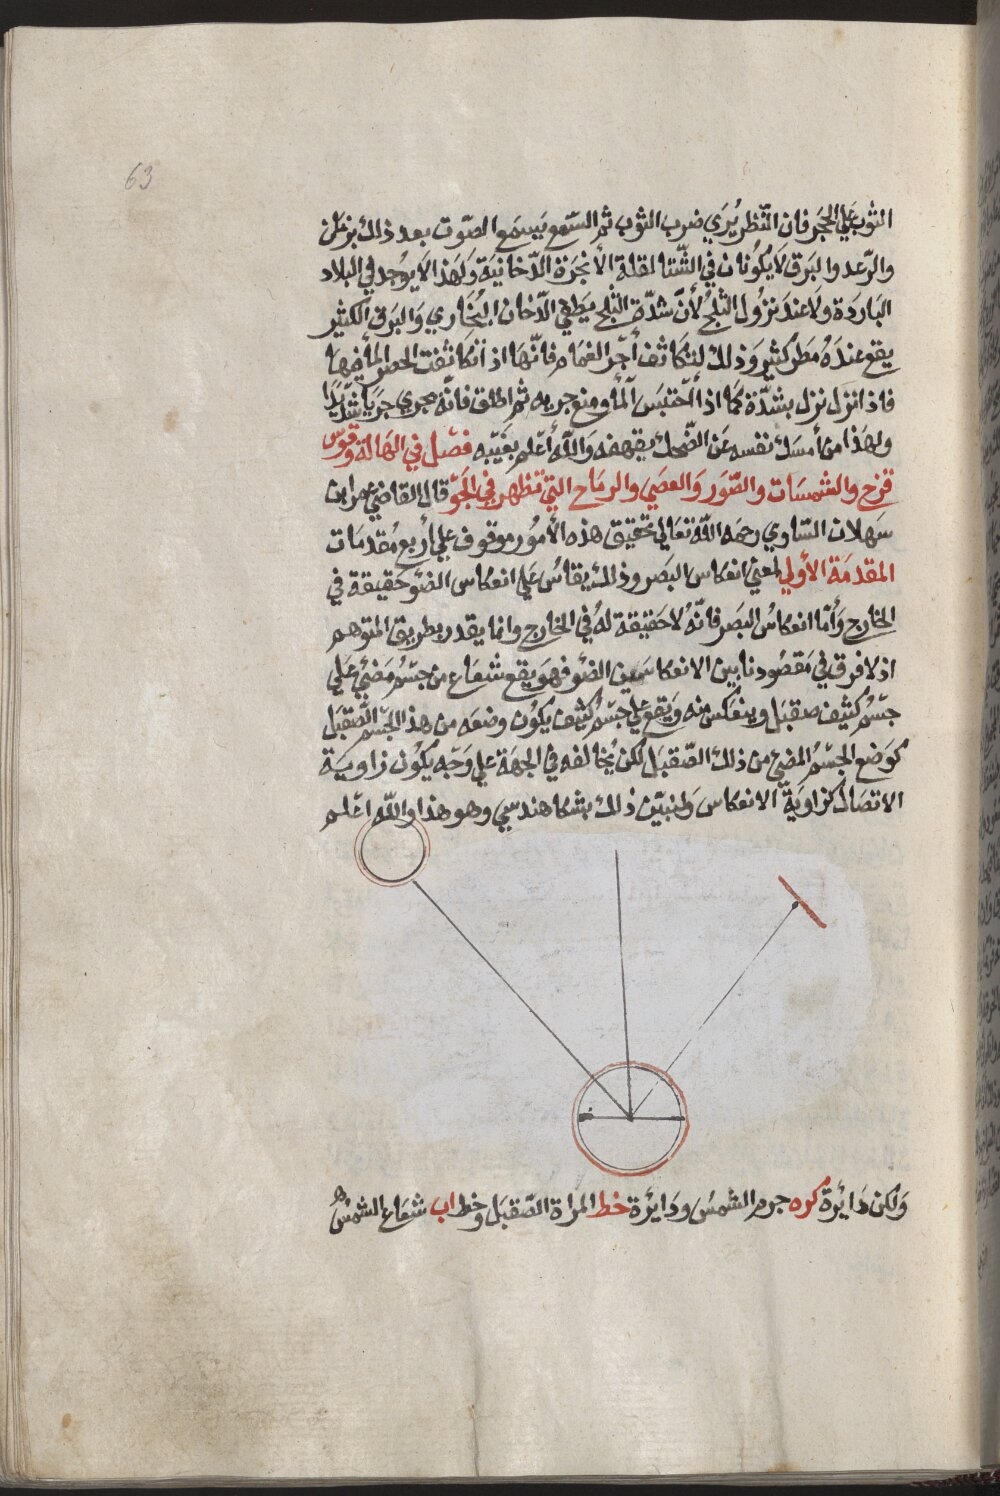 63
الثوب علي الحجر فان النظر يُري ضرب الثوب ثم السّمع يَسمع الصّوت بعد ذلك بزمان
والرّعد والبرق لايكُونان في الشّتا لقلة الأبخرة الدّخانية وَلهذا لايوُجد في البلاد
البَاردَة ولا عند نزُول الثلج لأنّ شدّة الثلج يَطفي الدّخان البُخاري وَالبرق الكثير
يقع عندَهُ مطر كثير وَذلك لتكاثف أجزا الغمام فانّها اذا تكاثفت انحصر المأ فيها
فاذا نزل نزل بشدّة كمَا اذا أحتبَس ألمأ ومنع جريه ثم اطلق فانّه يجري جريا شديدًا
ولهذا من أمسَك نفسه عَن الضّحك يقهقه وَاللّه أعلم بغيبه فصل في الهالة وقوس
قزح والشمسَات والصّوَر وَالعصي والرمَاح التي تظهر في الجوّ قال القاضي عمر ابن
سَهلان السّاوي رحمَه اللّه تعَالي تحقيق هذه الأمُور موقوف علي أربع مُقدمَات
المقدمَة الأولي لمعني انعكاس البصر وذلك يقاسُ عَلي انعكاس الضئو حَقيقة في
الخارج وَأمّا انعكاسُ البصر فانّهُ لا حَقيقة لهُ في الخارج وانما يقدر بطريق المتوهم
اذ لا فرق في مَقصُودنا بين الانعكاسَين الضئو فهوَ يقع شعَاع من جسْم مَضيئ عَلي
جسْمُ كثيف صقيل وينعكس منه وَيَقع علي جسْم كثيف يكوُن وضعَه من هذا الجسْم الصّقيل
كوَضع الجسْمُ المضئ من ذلك الصّقيل لكن يُخالفه في الجهَة علي وَجه يكوُن زاويَة
الاتصَال كزاويَة الانعكاس وَلنبيّن ذلك بشكل هندسي وهو هذا واللّه اعْلم
وَلكن دَايُرة كره جرم الشمسُ ودَايُرة خط المراة الصّقيل وخط اب شعَاع الشمسُ